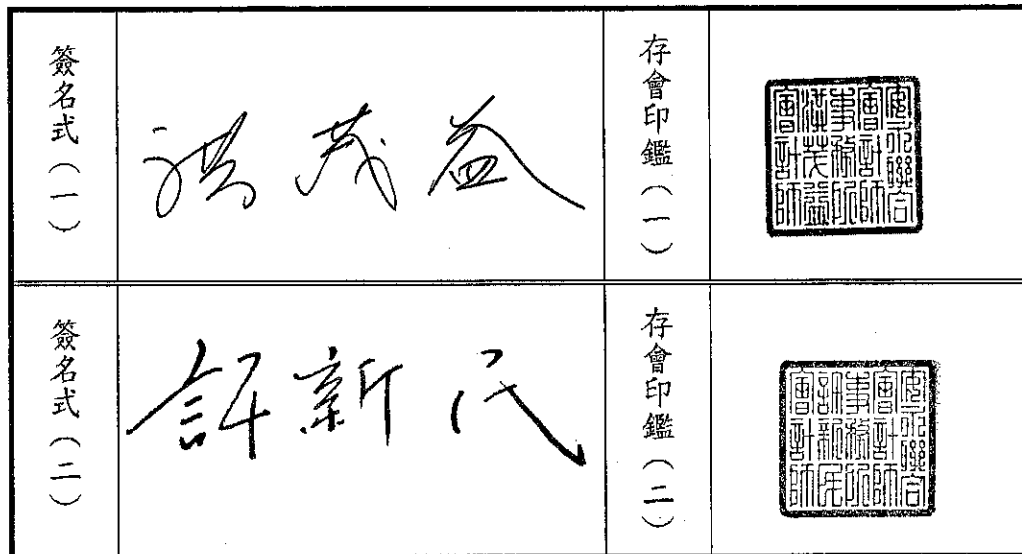 簽名式（一）
洪茂益
存會印鑑（一）
安永聯合
會計師
事務所
洪茂益
會計師
簽名式（二）
許新民
存會印鑑（二）
安永聯合
會計師
事務所
許新民
會計師